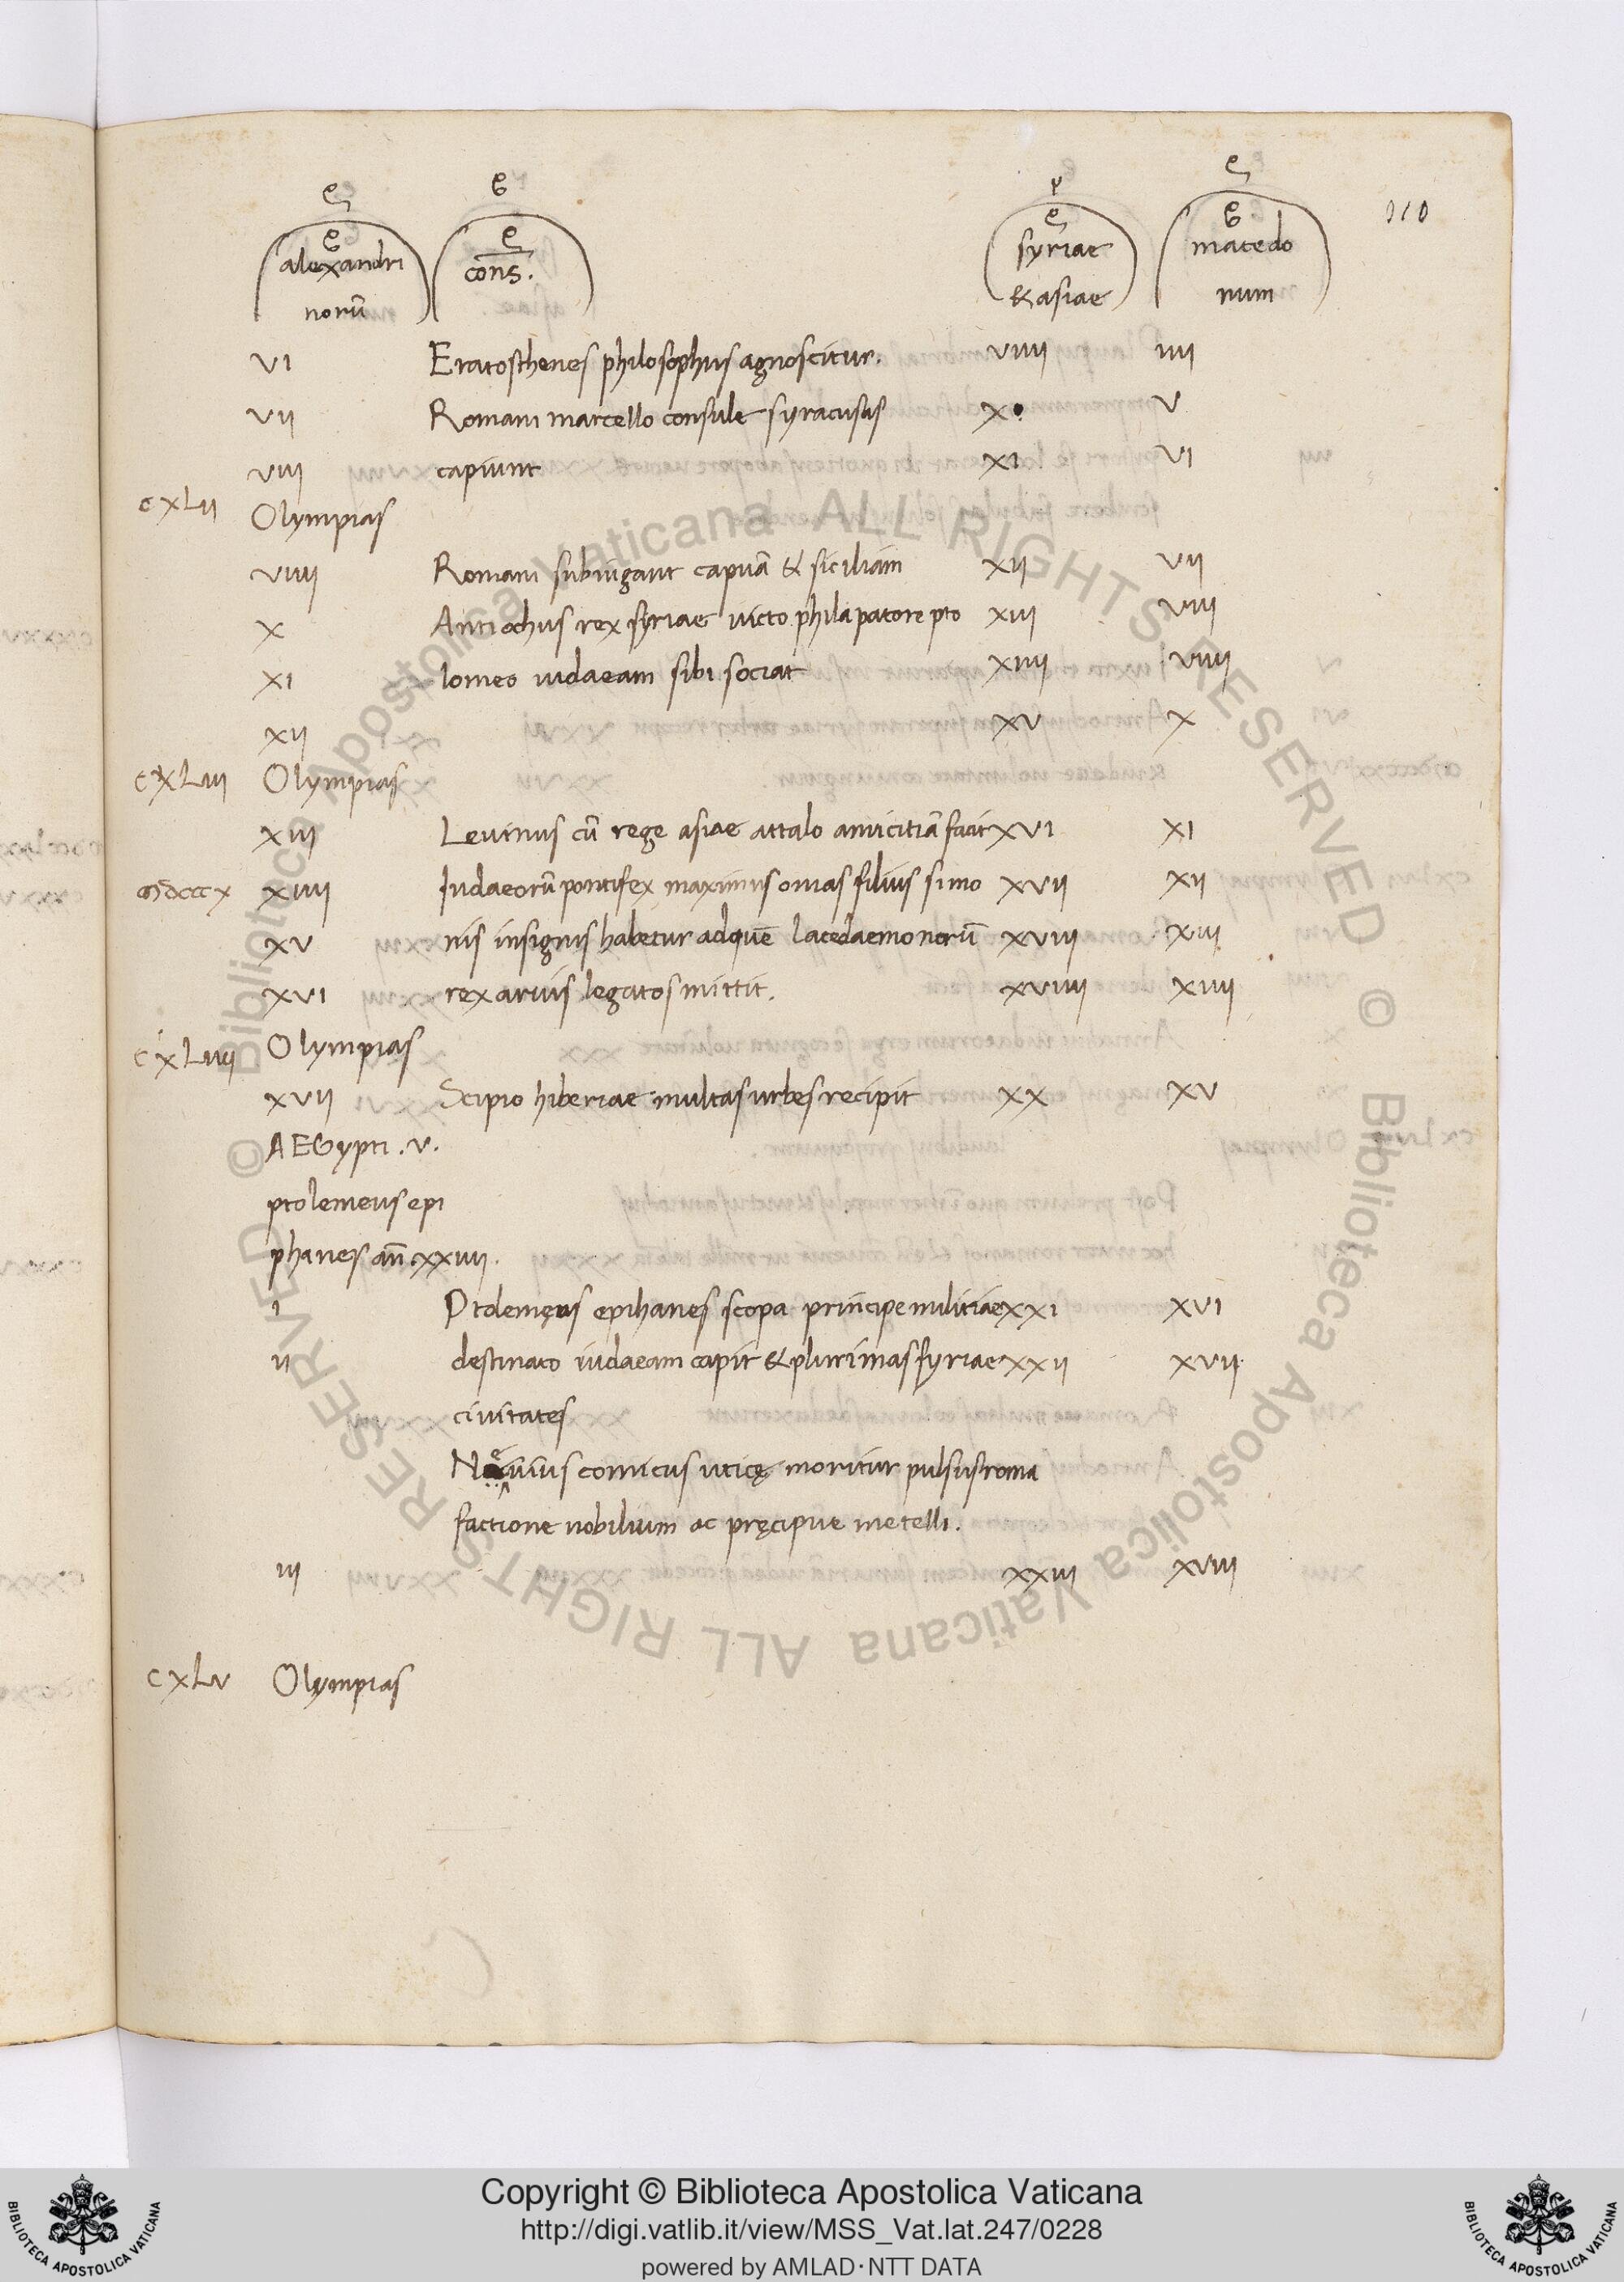 110
alexandri cons. syriae macedo
norū & asiae num
VI Eratosthenes philosophus agnoscitur. VIIII IIII
VII Romani marcello consule syracusas X V
VIII capiunt XI VI
CXLII Olympias
VIIII Romani subiugant capuā & siciliam XII VII
X Antiochus rex syriae victo philapatore pto XIII VIII
XI lomeo iudaeam sibi sociat XIIII VIIII
XII XV X
CXLIII Olympias
XIII Levinus cū rege asiae attalo amicitiā facit XVI XI
XIIII Iudaeorū pontifex maximus onias filius simo XVII XII
XV nis insignis habetur adquē lacedaemonorū XVIII XIII
XVI rex arius legatos mittit. XVIIII XIIII
CXLIIII Olympias
XVII Scipio hiberiae multas urbes recipit XX XV
AEGypti .V.
ptolemeus epi
phanes ann̄ XXIIII.
I Ptolemęus epihanes scopa principe militiae XXI XVI
II destinato iudaeam capit & plurimas syriae XXII XVII
civitates
Nęvius comicus uticę moritur pulsus roma
factione nobilium ac pręcipue metelli.
III XXIII XVIII
CXLV Olympias
© Biblioteca Apostolica Vaticana ALL RIGHTS RESERVED
© Biblioteca Apostolica Vaticana ALL RIGHTS RESERVED
Copyright © Biblioteca Apostolica Vaticana
http://digi.vatlib.it/view/MSS_Vat.lat.247/0228
powered by AMLAD·NTT DATA
BIBLIOTECA APOSTOLICA VATICANA
BIBLIOTECA APOSTOLICA VATICANA